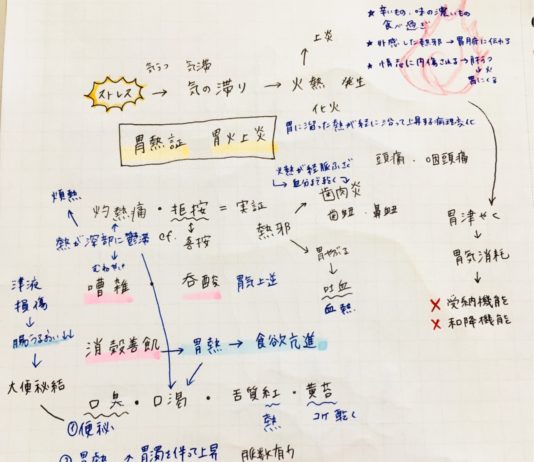 ★ 辛いもの、味の濃いもの
食べ過ぎ
★ 外感した熱邪 → 胃腑に伝わる
★ 情志に内傷される → 肝うつ
↓火
胃にくる
上炎
↑
気うつ 気滞
ストレス → 気の滞り → 火熱 発生
化火
胃に溜った熱が経に沿って上昇する病理変化
胃熱証 胃火上炎
火熱が経脈ふさぐ
頭痛・咽頭痛
歯肉炎
煩熱
灼熱痛・拒按 = 実証
歯衄・鼻衄
cf. 喜按
熱邪
熱が深部に鬱滞
胃津やく
↓
胃気消耗
↓
× 受納機能
× 和降機能
むねやけ
嘈雑 ・ 呑酸 胃気上逆
吐血
血熱
津液
損傷
↓
腸うるおい↓↓
↓
大便秘結
消穀善飢 → 胃熱 → 食欲亢進
口臭・口渇・舌質紅・黄苔
熱 コケ乾く
①便秘
②胃熱 ↑ 胃濁を伴って上昇 脈数有力